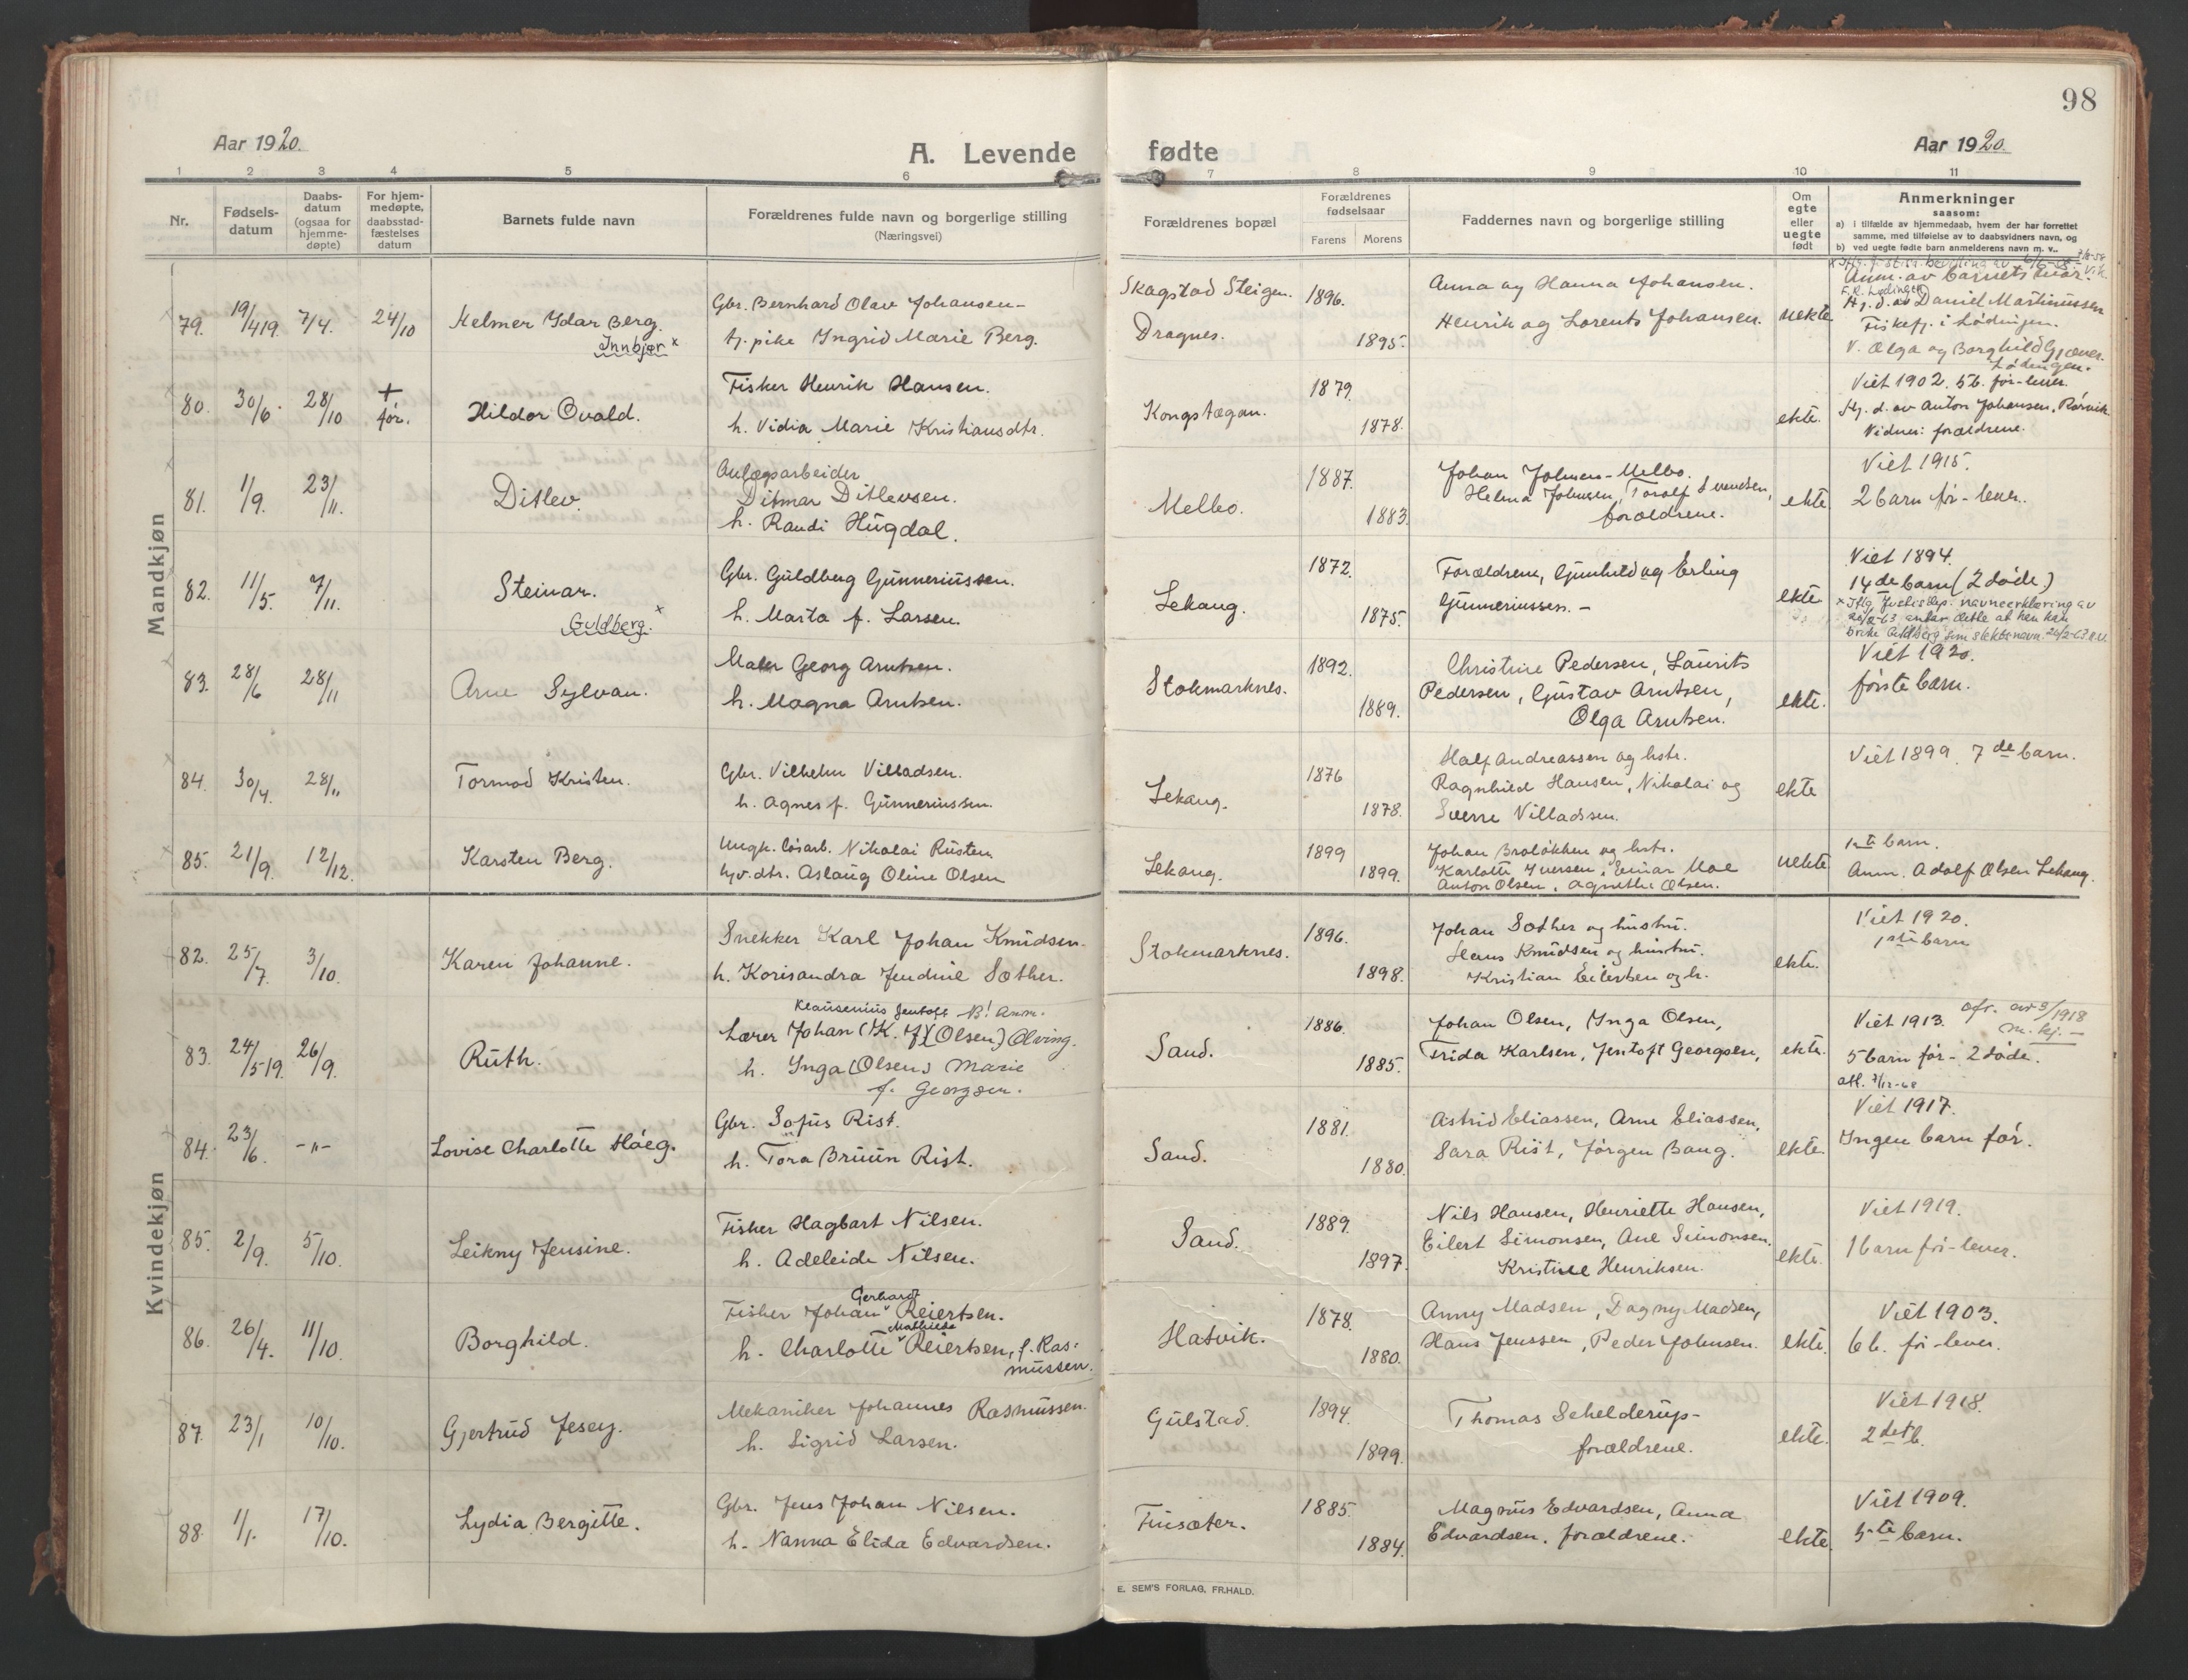 98
Aar 1920.
A. Levende fødte
Aar 1920.
1 2 3 4 5 6 7 8 9 10 11
Nr.
Fødsels-
datum
Daabs-
datum
(ogsaa for
hjemme-
døpte)
For hjem-
medøpte,
daabsstad-
fæstelses
datum
Barnets fulde navn
Forældrenes fulde navn og borgerlige stilling
(Næringsvei)
Forældrenes bopæl
Forældrenes
fødselsaar
Farens Morens
Faddernes navn og borgerlige stilling
Om
egte
eller
uegte
født
Anmerkninger
saasom:
a) i tilfælde av hjemmedaab, hvem der har forrettet
samme, med tilføielse av to daabsvidners navn, og
b) ved uegte fødte barn anmelderens navn m. v..
Mandkjøn
79. 19/4 19. 7/4. 24/10 Helmer Idar Berg.
Innbjør x
Gbr. Bernhard Olav Johansen-
tj. pike Ingrid Marie Berg.
Skagstad Steigen. 1896.
Dragnes. 1895.
Anna og Hanna Johansen.
Henrik og Lorents Johansen. uekte
Anm. av barnets mor.
Hj. d. av Daniel Martinussen
Fiskefj. i Lødingen.
V. Olga og Borghild Gjæver.
Lødingen.
80. 30/6. 28/10 + før. Hildor Ovald.
Fisker Henrik Hansen.
h. Vidia Marie Kristiansdtr.
Kongstægan. 1879. 1878. ekte.
Viet 1902. 5 b. før-lever.
Hj. d. av Anton Johansen, Rørvik
Vidner: forældrene.
81. 1/9. 23/11. Ditlev.
Anlægsarbeider
Ditmar Ditlevsen.
h. Randi Hugdal.
Melbo. 1887. 1883.
Johan Johnsen-Melbo.
Helma Johnsen, Torolf Svendsen,
forældrene.
ekte
Viet 1915.
2 barn før-lever.
82. 11/5. 7/11. Steinar.
Guldberg. x
Gbr. Guldberg Gunneriussen.
h. Marta f. Larsen.
Lekang. 1872. 1875.
Forældrene, Gunhild og Erling
Gunneriussen.-
ekte
Viet 1894.
14de barn (2 døde.)
x Iflg. Justisdep. navneerklæring av
20/2-63 antar dette at han kan
bruke Guldberg som slektsnavn. 26/2-63
83. 28/6 28/11 Arne Sylvan.
Maler Georg Arntsen.
h. Magna Arntsen.
Stokmarknes. 1892. 1889.
Christine Pedersen, Laurits
Pedersen, Gustav Arntsen,
Olga Arntsen.
ekte.
Viet 1920.
første barn.
84. 30/4. 28/11 Tormod Kristen.
Gbr. Vilhelm Villadsen.
h. Agnes f. Gunneriussen.
Lekang. 1876 1878.
Half Andreassen og hstr.
Ragnhild Hansen, Nikolai og
Sverre Villadssen.
ekte
Viet 1899. 7de barn.
85. 21/9. 12/12. Karsten Berg.
Ungk. løsarb. Nikolai Rusten
hjv. dtr. Aslaug Oline Olsen
Lekang. 1899 1899.
Johan Braløkken og hstr.
Karlotte Iversen, Einar Moe
Anton Olsen, Agnethe Olsen.
uekte
1ste barn.
Anm. Adolf Olsen Lekang.
Kvindekjøn
82. 25/7. 3/10. Karen Johanne.
Snekker Karl Johan Knudsen.
h. Korisandra Jendine Sæther.
Stokmarknes. 1896. 1898.
Johan Sæther og hustru.
Hans Knudsen og hustru.
Kristian Eilertsen og h.
ekte.
Viet 1920.
1ste barn
83. 24/5 19. 26/9. Ruth.
Klausenius Jentoft NB! Anm.
Lærer Johan (K. J) (Olsen) Olving.
h. Inga (Olsen) Marie
f. Georgsen.
Sand. 1886. 1885.
Johan Olsen, Inga Olsen,
Frida Karlsen, Jentoft Georgsen,
ekte.
Viet 1913.
5 barn før- 2 døde.
84. 23/6. -"- Lovise Charlotte Høeg.
Gbr. Sofus Rist.
h. Tora Bruun Rist.
Sand. 1881. 1880.
Astrid Eliassen, Arne Eliassen,
Sara Rist, Jørgen Bang.
ekte
Viet 1917.
Ingen barn før.
85. 2/9. 5/10. Leikny Jensine.
Fisker Hagbart Nilsen.
h. Adeleide Nilsen.
Sand. 1889. 1897.
Nils Hansen, Henriette Hansen,
Eilert Simonsen, Ane Simonsen.
Kristine Henriksen.
ekte.
Viet 1919.
1 barn før-lever.
86. 26/4. 11/10. Borghild.
Gerhard
Fisker Johan Reiertsen.
Mathilde
h. Charlotte Reiertsen, f. Ras-
mussen.
Hatvik. 1878. 1880.
Anny Madsen, Dagny Madsen,
Hans Jenssen, Peder Johnsen.
ekte.
Viet 1903.
6 b. før-lever.
87. 23/1 10/10. Gjertrud Jesey.
Mekaniker Johannes Rasmussen.
h. Sigrid Larsen.
Gulstad. 1894. 1899.
Thomas Schelderup-
forældrene.
ekte.
Viet 1918.
2det b.
88. 1/1. 17/10. Lydia Bergitte.
Gbr. Jens Johan Nilsen.
h. Nanna Elida Edvardsen.
Finsæter. 1885. 1884.
Magnus Edvardsen, Anna
Edvardsen, forældrene.
ekte.
Viet 1909.
5te barn.
E. SEM'S FORLAG, FR.HALD.